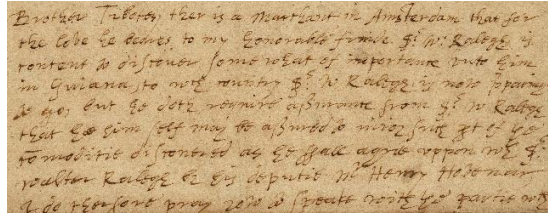 Brother Tibotes, ther is a Marchant in Amsterdam that for
the love he beares to my honorable frinde Sr. Wr. Ralegh is
content to discover some what of importance unto him
in Guiana, to wch country Sr. W Ralegh is now
to go, but he doth require assurance from Sr. W Ralegh
that he him self may be assured to inioy such of the
comoditie discovered as he shall agree uppon wth Sr.
walter Ralegh or his deputie Mr. Henry
I do therfore pray yow to speake with the partie